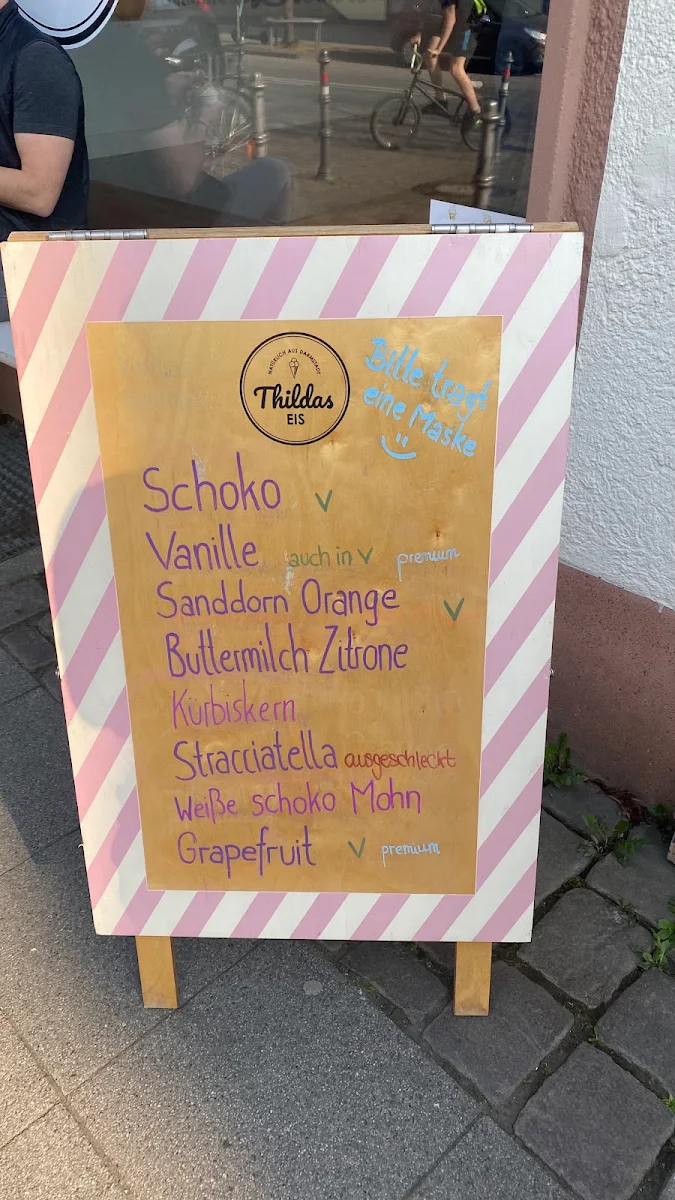 NATÜRLICH AUS DARMSTADT
Thildas
EIS
Bitte tragt
eine Maske
Schoko V
Vanille auch in V premium
Sanddorn Orange V
Buttermilch Zitrone
Kürbiskern
Stracciatella ausgeschleckt
Weiße schoko Mohn
Grapefruit V premium